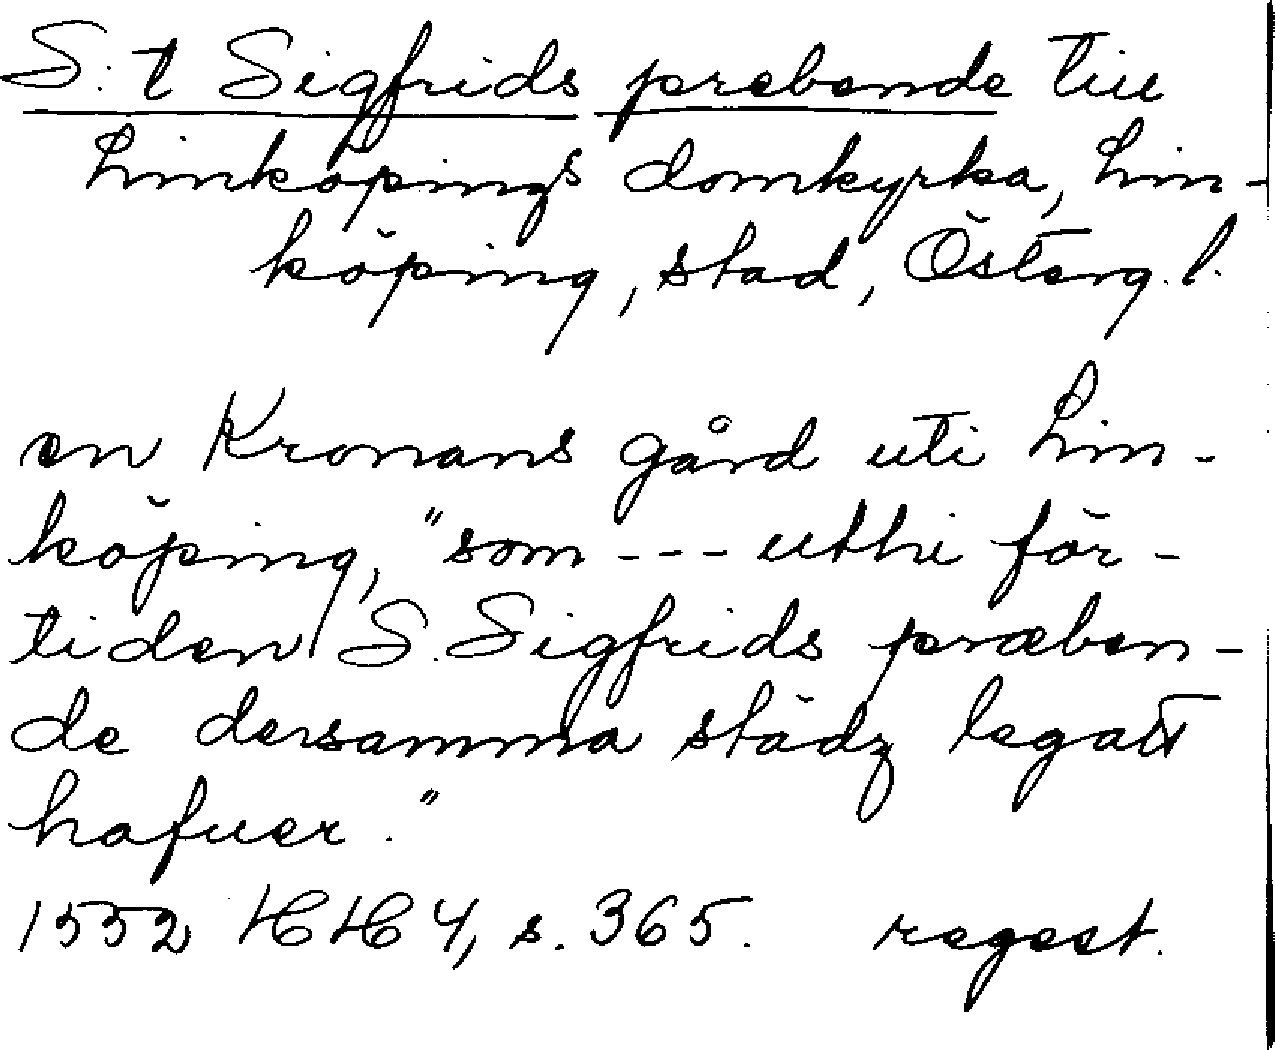 S:t Sigfrids prebende till
Linköpings domkyrka, Lin-
köping, stad, Österg. l.
en Kronans gård uti Lin-
köping, "som --- uthi för-
tiden S. Sigfrids præben-
de dersamma städz legatt
hafuer."
1552 HH 4, s. 365. regest.